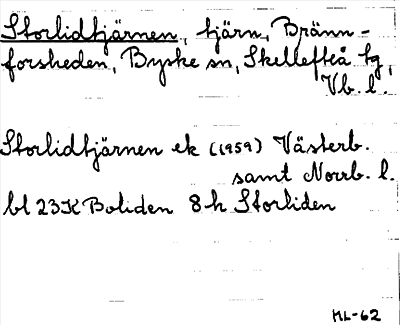 Storlidtjärnen, tjärn, Bränn-
forsheden, Byske sn, Skellefteå tg,
Vb. l.
Storlidtjärnen ek (1959) Västerb.
samt Norrb. l.
bl 23K Boliden 8h Storliden
ML-62